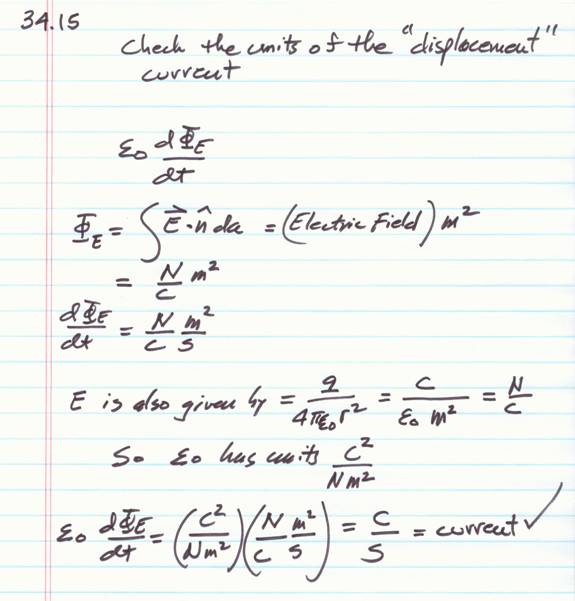 34.15
Check the units of the "displacement"
current
ε₀ dΦ_E/dt
Φ_E = ∫ E⃗·n̂ da = (Electric Field) m²
= N/C m²
dΦ_E/dt = N/C m²/s
E is also given by = q/(4πε₀r²) = C/(ε₀ m²) = N/C
So ε₀ has units C²/(Nm²)
ε₀ dΦ_E/dt = (C²/(Nm²))(N/C m²/s) = C/s = current ✓